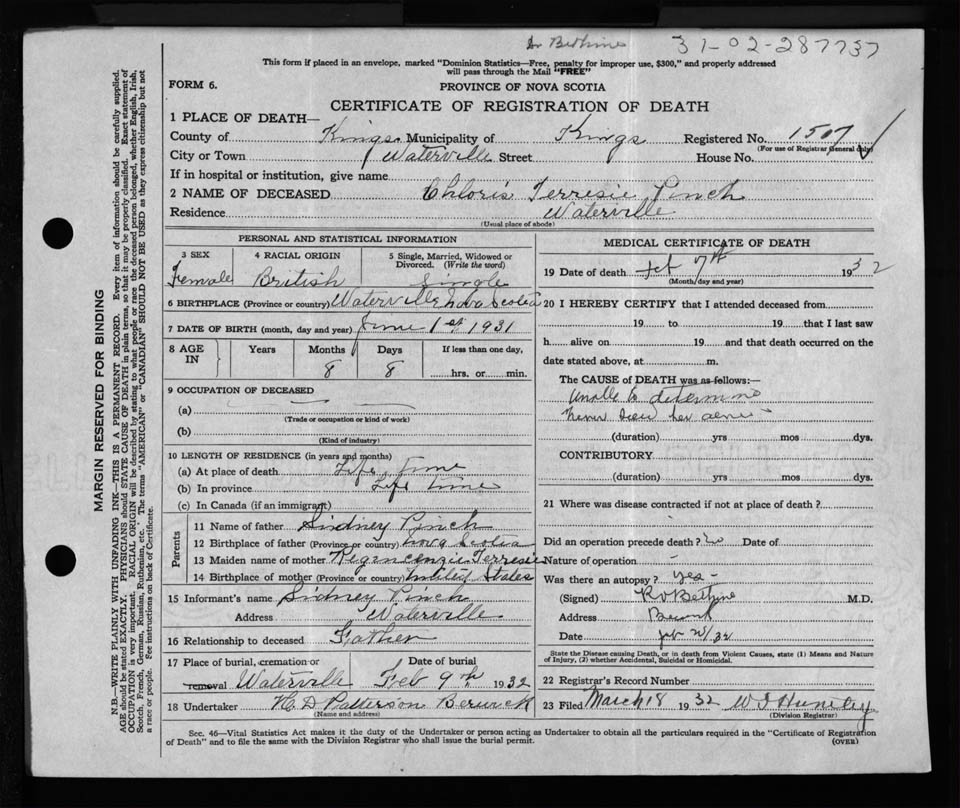 Dr Bethune 31-02-287737
This form if placed in an envelope, marked "Dominion Statistics—Free, penalty for improper use, $300," and properly addressed
will pass through the Mail "FREE"
FORM 6.
PROVINCE OF NOVA SCOTIA
CERTIFICATE OF REGISTRATION OF DEATH
1 PLACE OF DEATH—
County of Kings Municipality of Kings Registered No. 1507
(For use of Registrar General only)
City or Town Waterville Street House No.
If in hospital or institution, give name
2 NAME OF DECEASED Chloris Terresie Pinch
Residence Waterville
(Usual place of abode)
PERSONAL AND STATISTICAL INFORMATION
3 SEX 4 RACIAL ORIGIN 5 Single, Married, Widowed or
Divorced. (Write the word)
Female British Single
6 BIRTHPLACE (Province or country) Waterville Nova Scotia
7 DATE OF BIRTH (month, day and year) June 1st 1931
8 AGE IN Years Months Days If less than one day,
8 8 hrs. or min.
9 OCCUPATION OF DECEASED
(a)
(Trade or occupation or kind of work)
(b)
(Kind of industry)
10 LENGTH OF RESIDENCE (in years and months)
(a) At place of death Life time
(b) In province Life time
(c) In Canada (if an immigrant)
Parents
11 Name of father Sindney Pinch
12 Birthplace of father (Province or country) Nova Scotia
13 Maiden name of mother Terresie
14 Birthplace of mother (Province or country) United States
15 Informant's name Sidney Pinch
Address Waterville
16 Relationship to deceased Father
17 Place of burial, cremation or Date of burial
removal Waterville Feb 9th 1932
18 Undertaker H D Patterson Berwick
(Name and address)
MEDICAL CERTIFICATE OF DEATH
19 Date of death Feb 7th 1932
(Month/day and year)
20 I HEREBY CERTIFY that I attended deceased from
19 to 19 that I last saw
h alive on 19 and that death occurred on the
date stated above, at m.
The CAUSE of DEATH was as follows:—
Unable to determine
never seen her
(duration) yrs mos dys.
CONTRIBUTORY
(duration) yrs mos dys.
21 Where was disease contracted if not at place of death?
Did an operation precede death? no Date of
Nature of operation
Was there an autopsy? yes -
(Signed) R V Bethune M.D.
Address
Date Feb /32
State the Disease causing Death, or in death from Violent Causes, state (1) Means and Nature
of Injury, (2) whether Accidental, Suicidal or Homicidal.
22 Registrar's Record Number
23 Filed March 18 1932 W J Huntley
(Division Registrar)
Sec. 46—Vital Statistics Act makes it the duty of the Undertaker or person acting as Undertaker to obtain all the particulars required in the "Certificate of Registration
of Death" and to file the same with the Division Registrar who shall issue the burial permit.
(OVER)
MARGIN RESERVED FOR BINDING
N.B.—WRITE PLAINLY WITH UNFADING INK—THIS IS A PERMANENT RECORD. Every item of information should be carefully supplied.
AGE should be stated EXACTLY. PHYSICIANS should STATE CAUSE OF DEATH in plain terms, so that it may be properly classified. Exact statement of
OCCUPATION is very important. RACIAL ORIGIN will be described by stating to what people or race the deceased person belonged, whether English, Irish,
Scotch, French, German, Russian, Ruthenian, etc. The terms "AMERICAN" or "CANADIAN" SHOULD NOT BE USED as they express citizenship but not
a race or people. See instructions on back of Certificate.